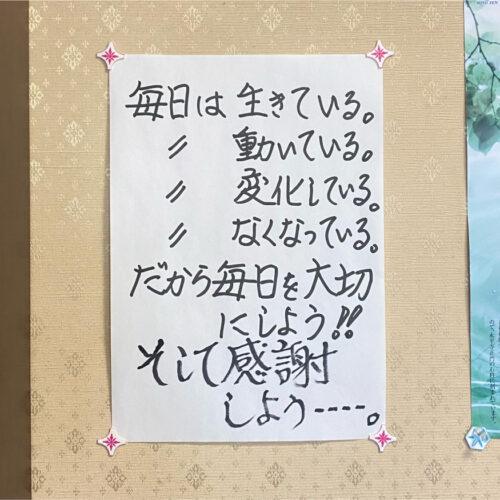 毎日は 生きている。
〃 動いている。
〃 変化している。
〃 なくなっている。
だから毎日を大切
にしよう!!
そして感謝
しよう----。